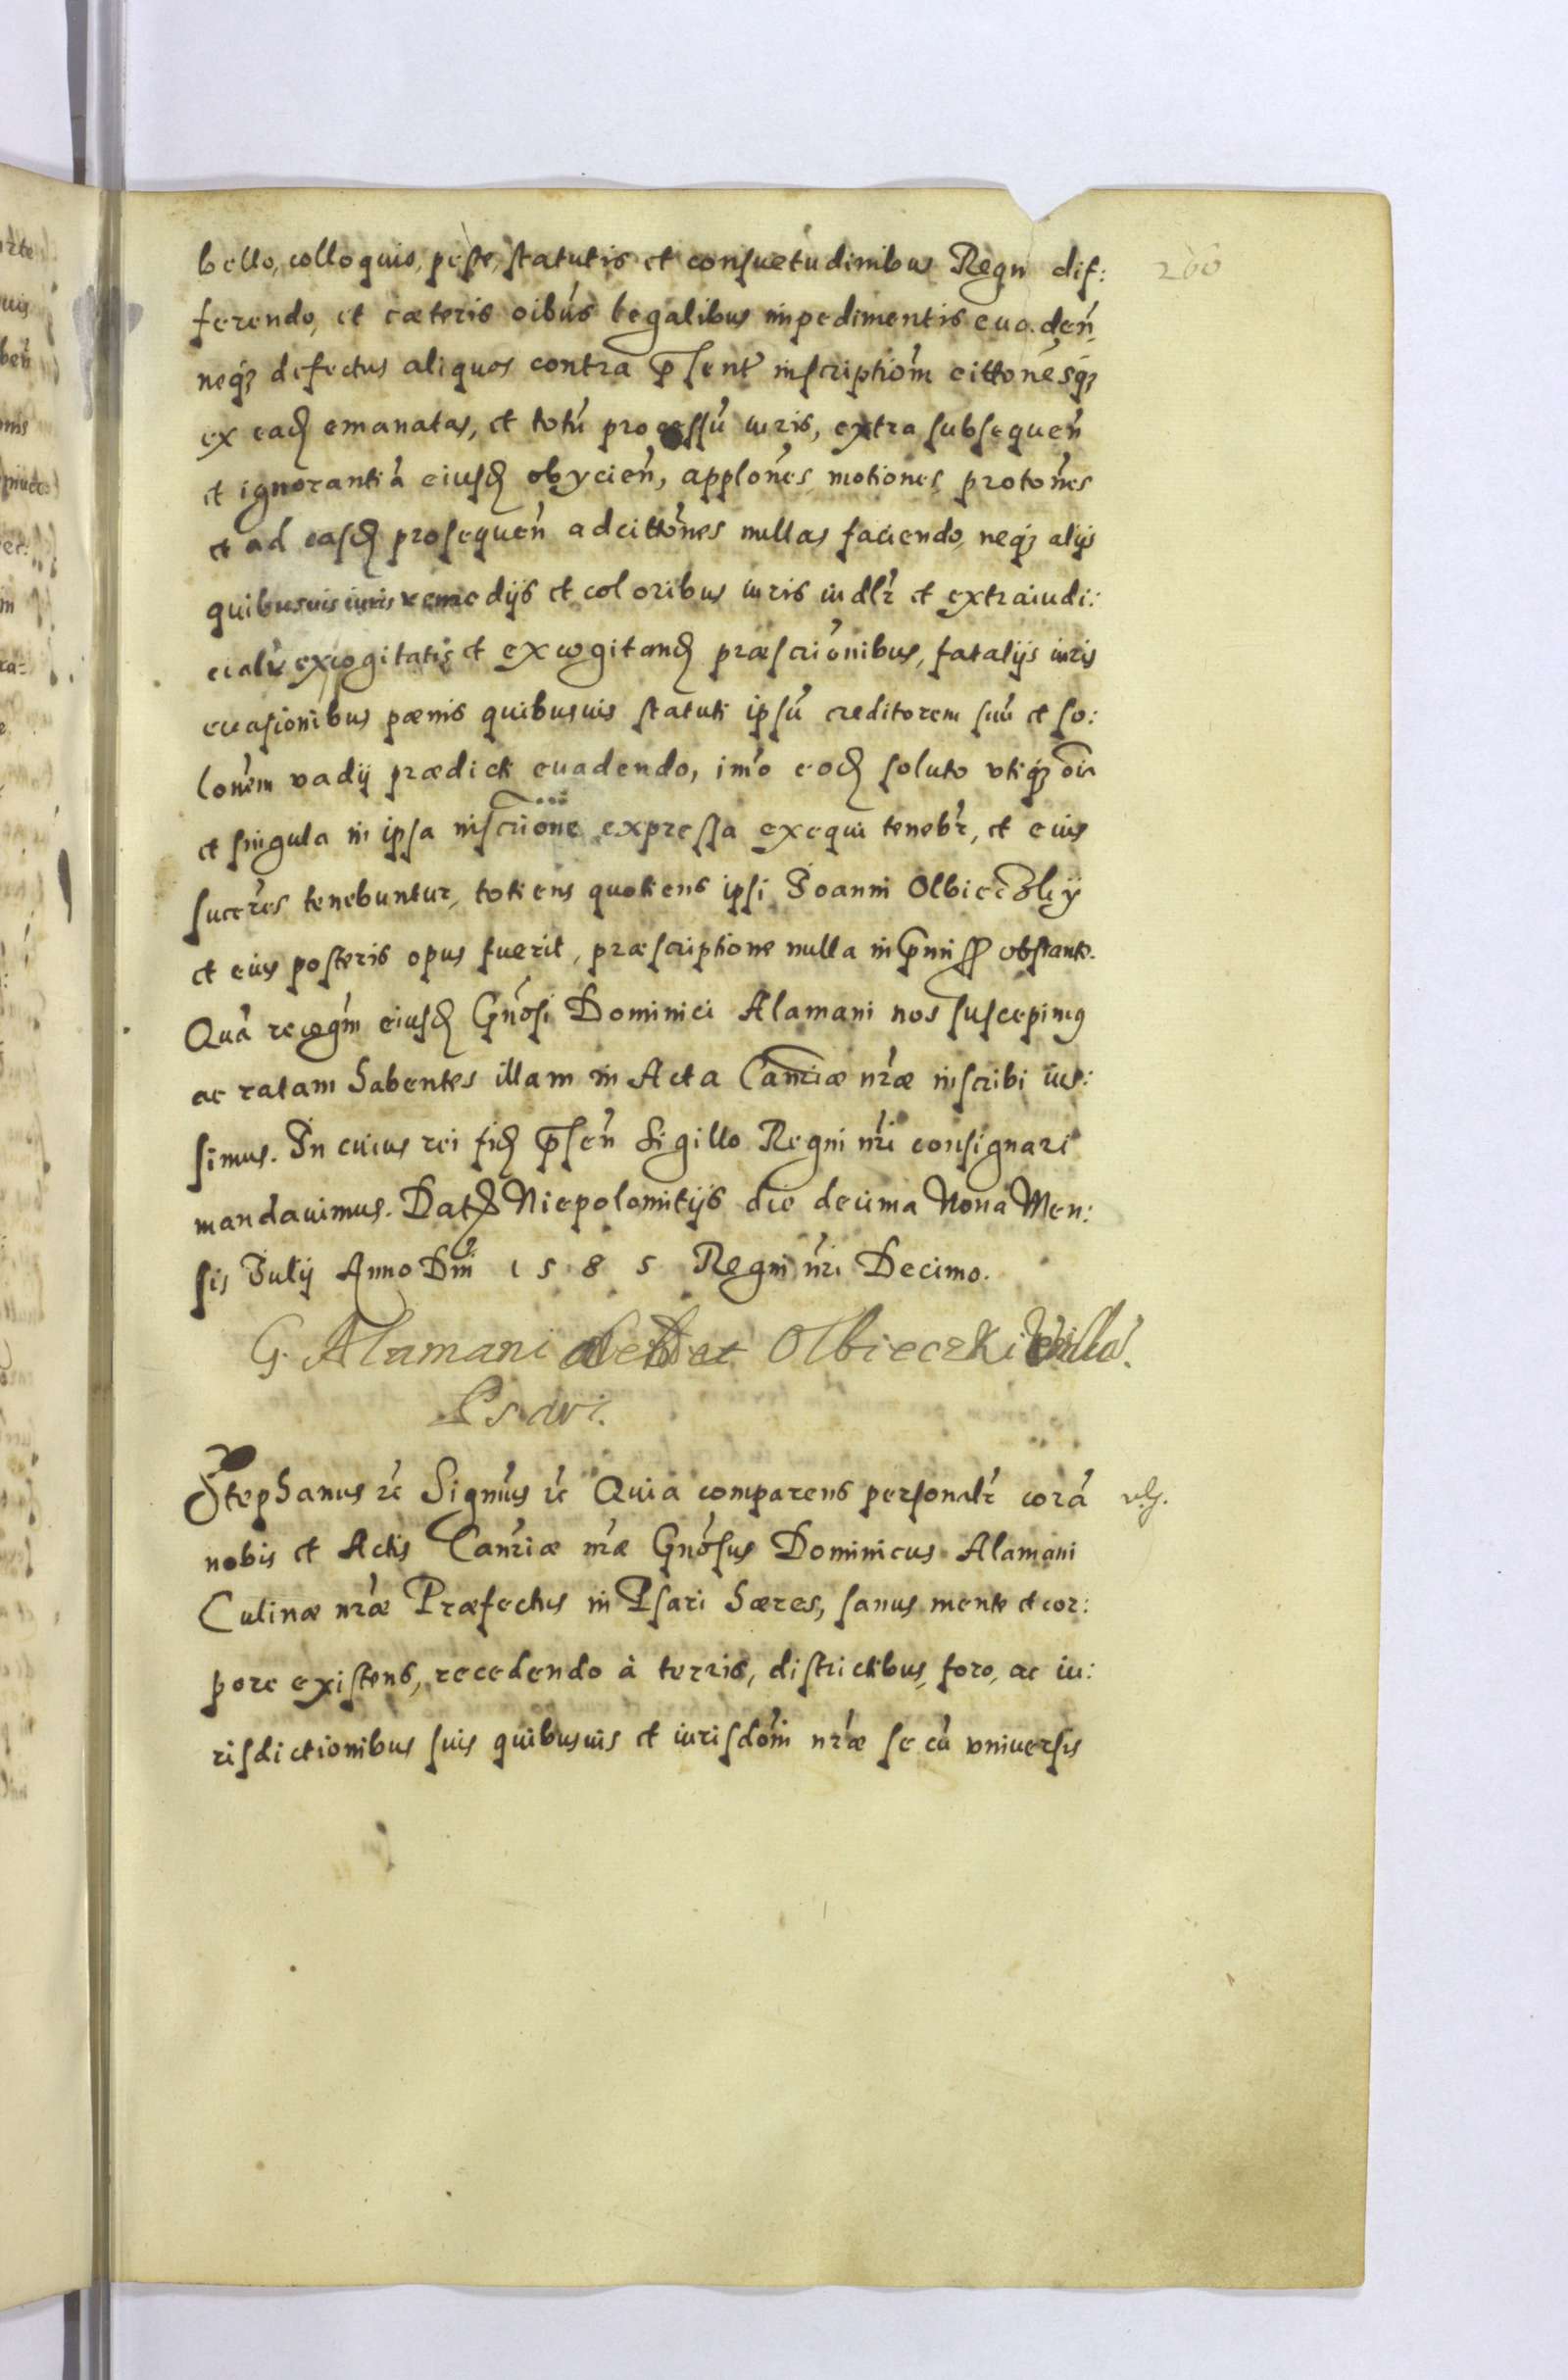 260
bello, colloquio, peste, statutis et consuetudinibus Regni dif:
ferendo, et cæteris oibus legalibus impedimentis euaden̄,
neq3 defectus aliquos contra p̄sent inscriptiom̄ cittonesq3
ex ead emanatas, et totū processū iuris, extra subsequen̄
et ignorantiā eiusd obycien̄, applones, motiones, protones
et ad easd prosequen̄ adcittones nullas faciendo, neq3 alijs
quibusuis iuris remedijs et coloribus iuris iudlr et extraiudi:
cialr excogitatis et excogitand præscrionibus, fatalijs iuris
euasionibus pænis quibusuis statuti ipsū creditorem suū et so:
lonem vadij prædicti euadendo, imo eod soluto vtiq3 oia
et singula in ipsa inscrione expressa exequi tenebr, et eius
succres tenebuntur, totiens quotiens ipsi Joanni Olbieczky
et eius posteris opus fuerit, præscriptione nulla in p̄mis obstante.
Quā recogm eiusd Gnosi Dominici Alamani nos suscepimus
ac ratam habentes illam in Acta Canriæ nræ inscribi ius:
simus. In cuius rei fid p̄sen̄ Sigillo Regni nri consignari
mandauimus. Dat Niepolomitijs die decima Nona Men:
sis Julij Anno Dni 1585 Regni nri Decimo.
G. Alamani Olbieczki
Psari.
Stephanus rc Signus rc Quia comparens personalr corā
nobis et Actis Canriæ nræ Gnosus Dominicus Alamani
Culinæ nræ Præfectus in Psari hæres, sanus mente et cor:
pore existens, recedendo à terris, districtibus, foro, ac iu:
risdictionibus suis quibusuis et iurisdom nræ se cū vniuersis